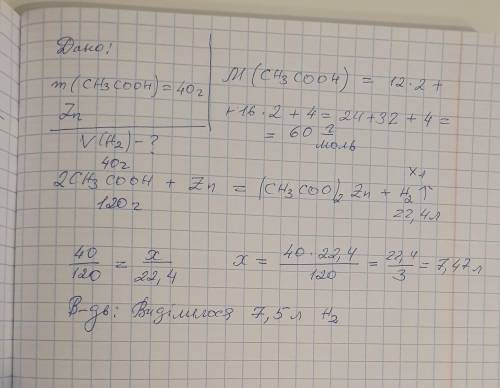 Дано:
m(CH₃COOH) = 40г
Zn
V(H₂) - ?
M(CH₃COOH) = 12·2 +
+16·2 + 4 = 24+32 + 4 =
= 60 г/моль
40г x₁
2CH₃COOH + Zn = (CH₃COO)₂Zn + H₂↑
120г 22,4л
40/120 = x/22,4 x = 40·22,4/120 = 22,4/3 = 7,47л
В-дь: Виділилося 7,5л H₂